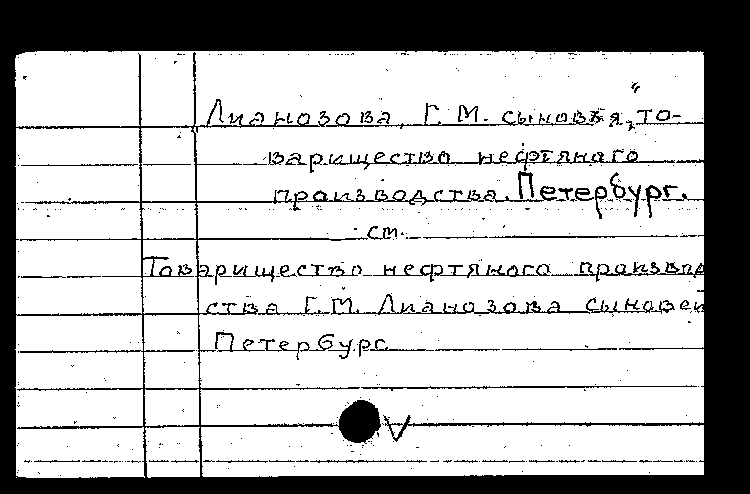 Лианозова, Г. М. сыновья," то-
варищество нефтяного
производства. Петербург.
см.
Товарищество нефтяного производ
ства Г.М. Лианозова сыновей
Петербург